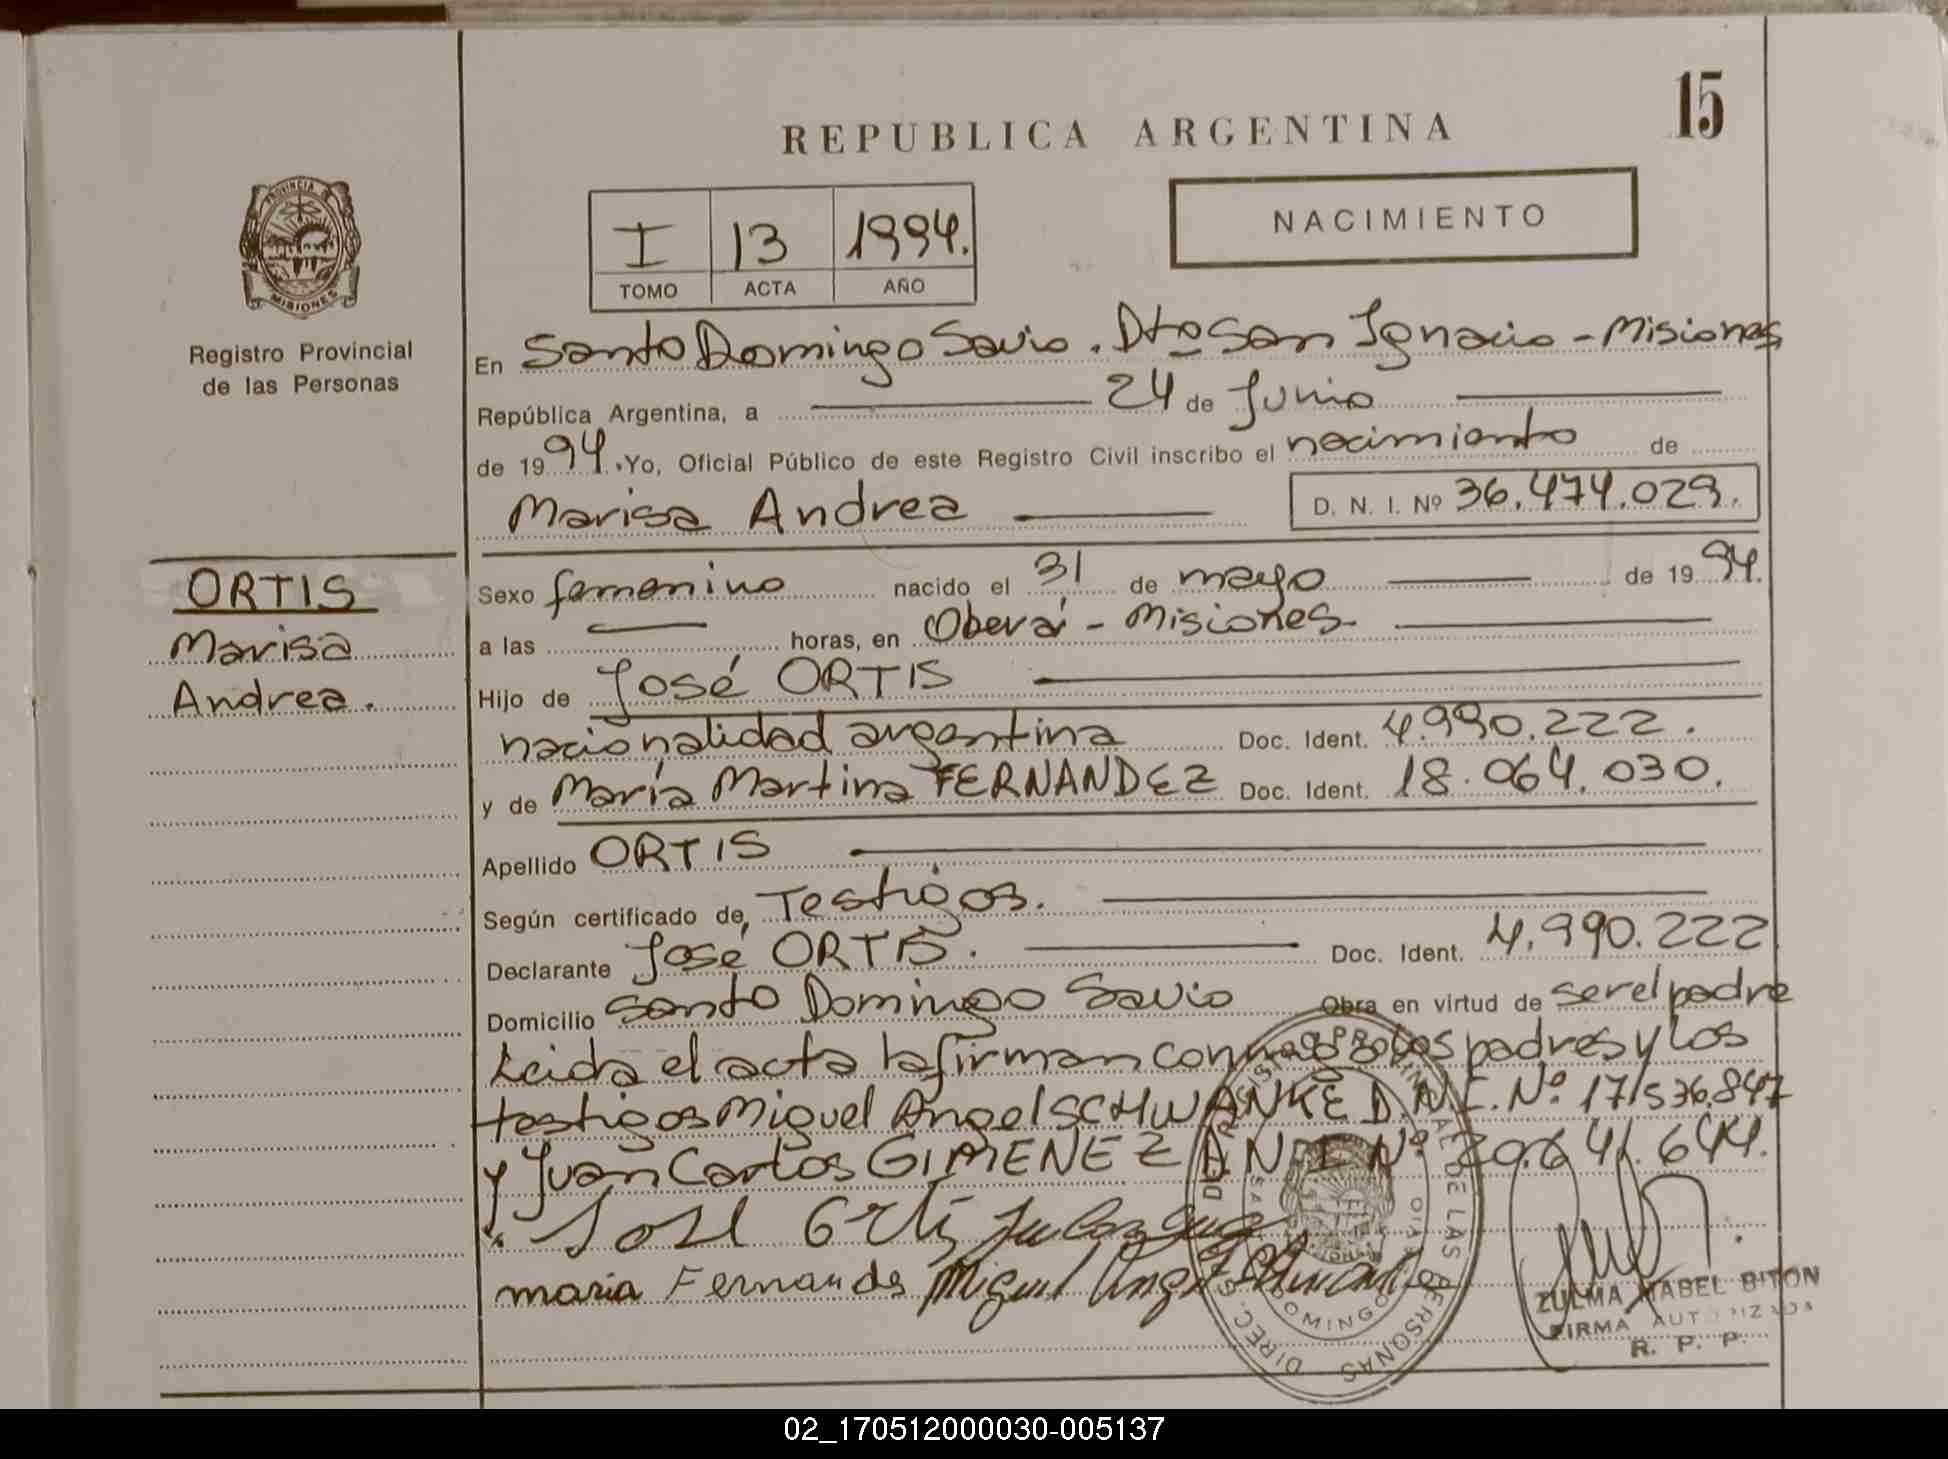 15
REPUBLICA ARGENTINA
NACIMIENTO
I 13 1994.
TOMO ACTA AÑO
PROVINCIA DE
MISIONES
Registro Provincial
de las Personas
En Santo Domingo Savio. Dto San Ignacio - Misiones
República Argentina, a 24 de Junio
de 1994. Yo, Oficial Público de este Registro Civil inscribo el nacimiento de
Marisa Andrea D. N. I. Nº 36.474.029.
ORTIS
Marisa
Andrea.
Sexo femenino nacido el 31 de mayo de 1994.
a las horas, en Oberá - Misiones.
Hijo de José ORTIS
nacionalidad argentina Doc. Ident. 4.990.222.
y de María Martina FERNANDEZ Doc. Ident. 18.064.030.
Apellido ORTIS
Según certificado de, Testigos.
Declarante José ORTIS. Doc. Ident. 4.990.222
Domicilio Santo Domingo Savio Obra en virtud de ser el padre
Leida el acta la firman conmigo los padres y los
testigos Miguel Angel SCHWANKE D.N.I. Nº 17.536.847
y Juan Carlos GIMENEZ D.N.I Nº 20.641.644.
José Ortis
maria Fernandes Miguel Angel
DIREC. GRAL. REGISTRO PROVINCIAL DE LAS PERSONAS
ZULMA MABEL BITON
FIRMA AUTORIZADA
R. P. P.
02_170512000030-005137